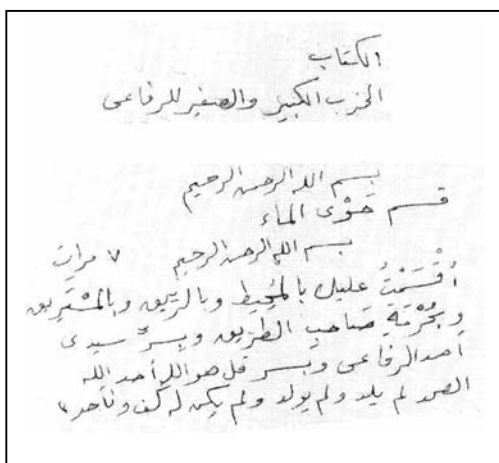 الكتاب
الحزب الكبير والصغير للرفاعى
بسم الله الرحمن الرحيم
قسم حَوْى الماء
بسم الله الرحمن الرحيم ٧ مرات
أقْسَمْتُ عليك بالمُحِيط وبالرّيق وبالمشْتَريق
وبحُرْمَةِ صَاحبِ الطريق وبِسرِّ سيدى
أحمد الرفاعى وبسر قل هو الله أحد الله
الصمد لم يلد ولم يولد ولم يكن له كفوا أحد